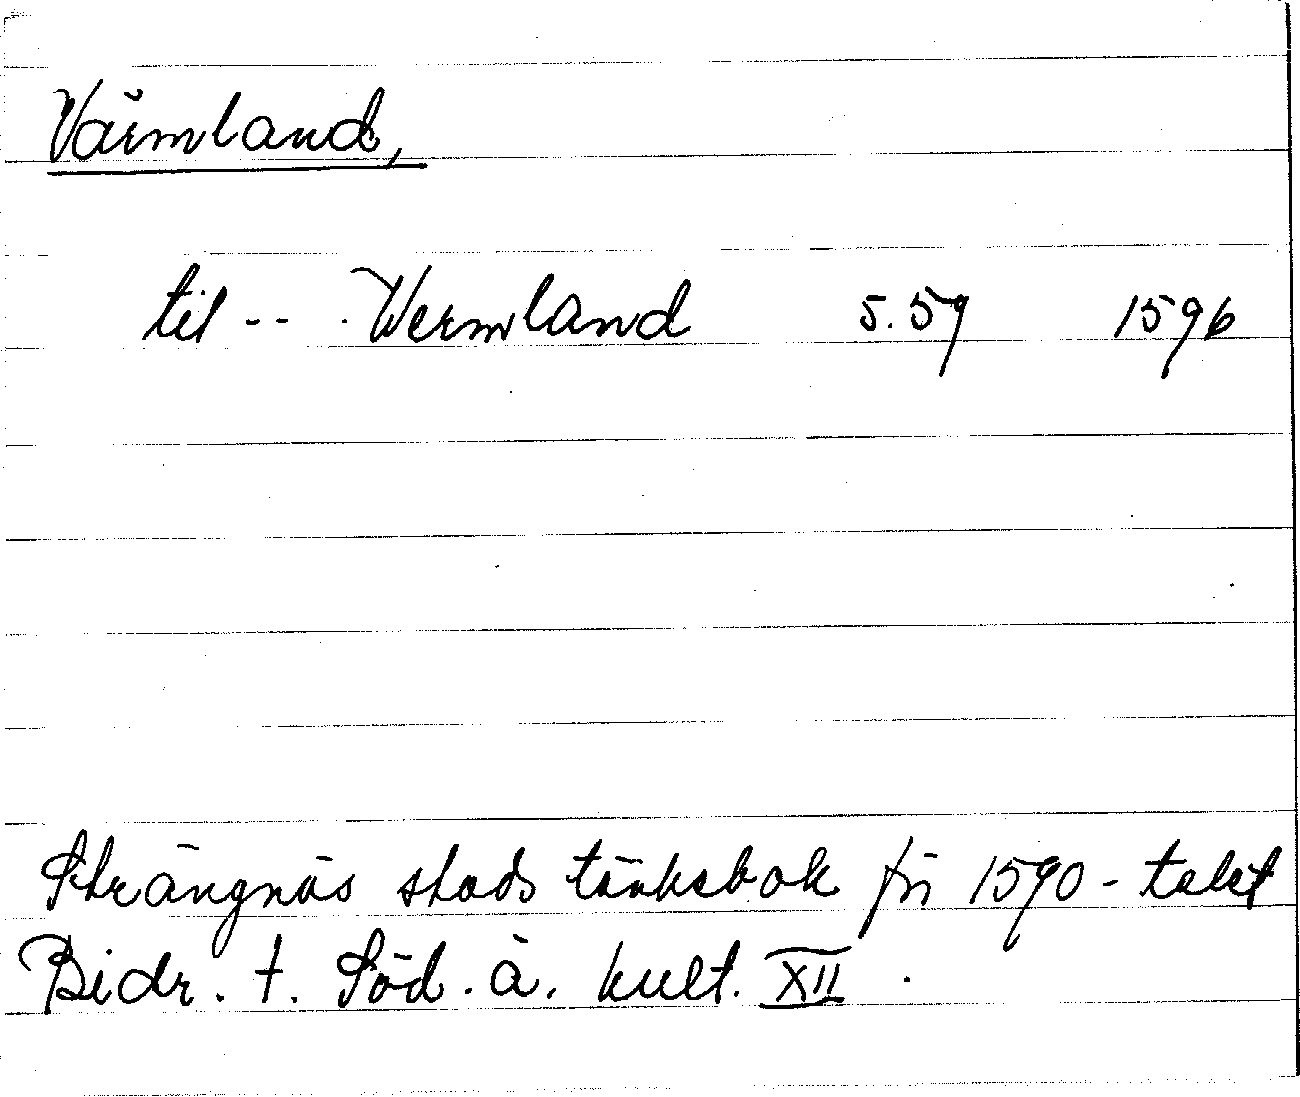 Värmland,
til -- Wermland 5.59 1596
Strängnäs stads tänkebok frn 1590-talet
Bidr. t. Söd. ä. kult. XII.